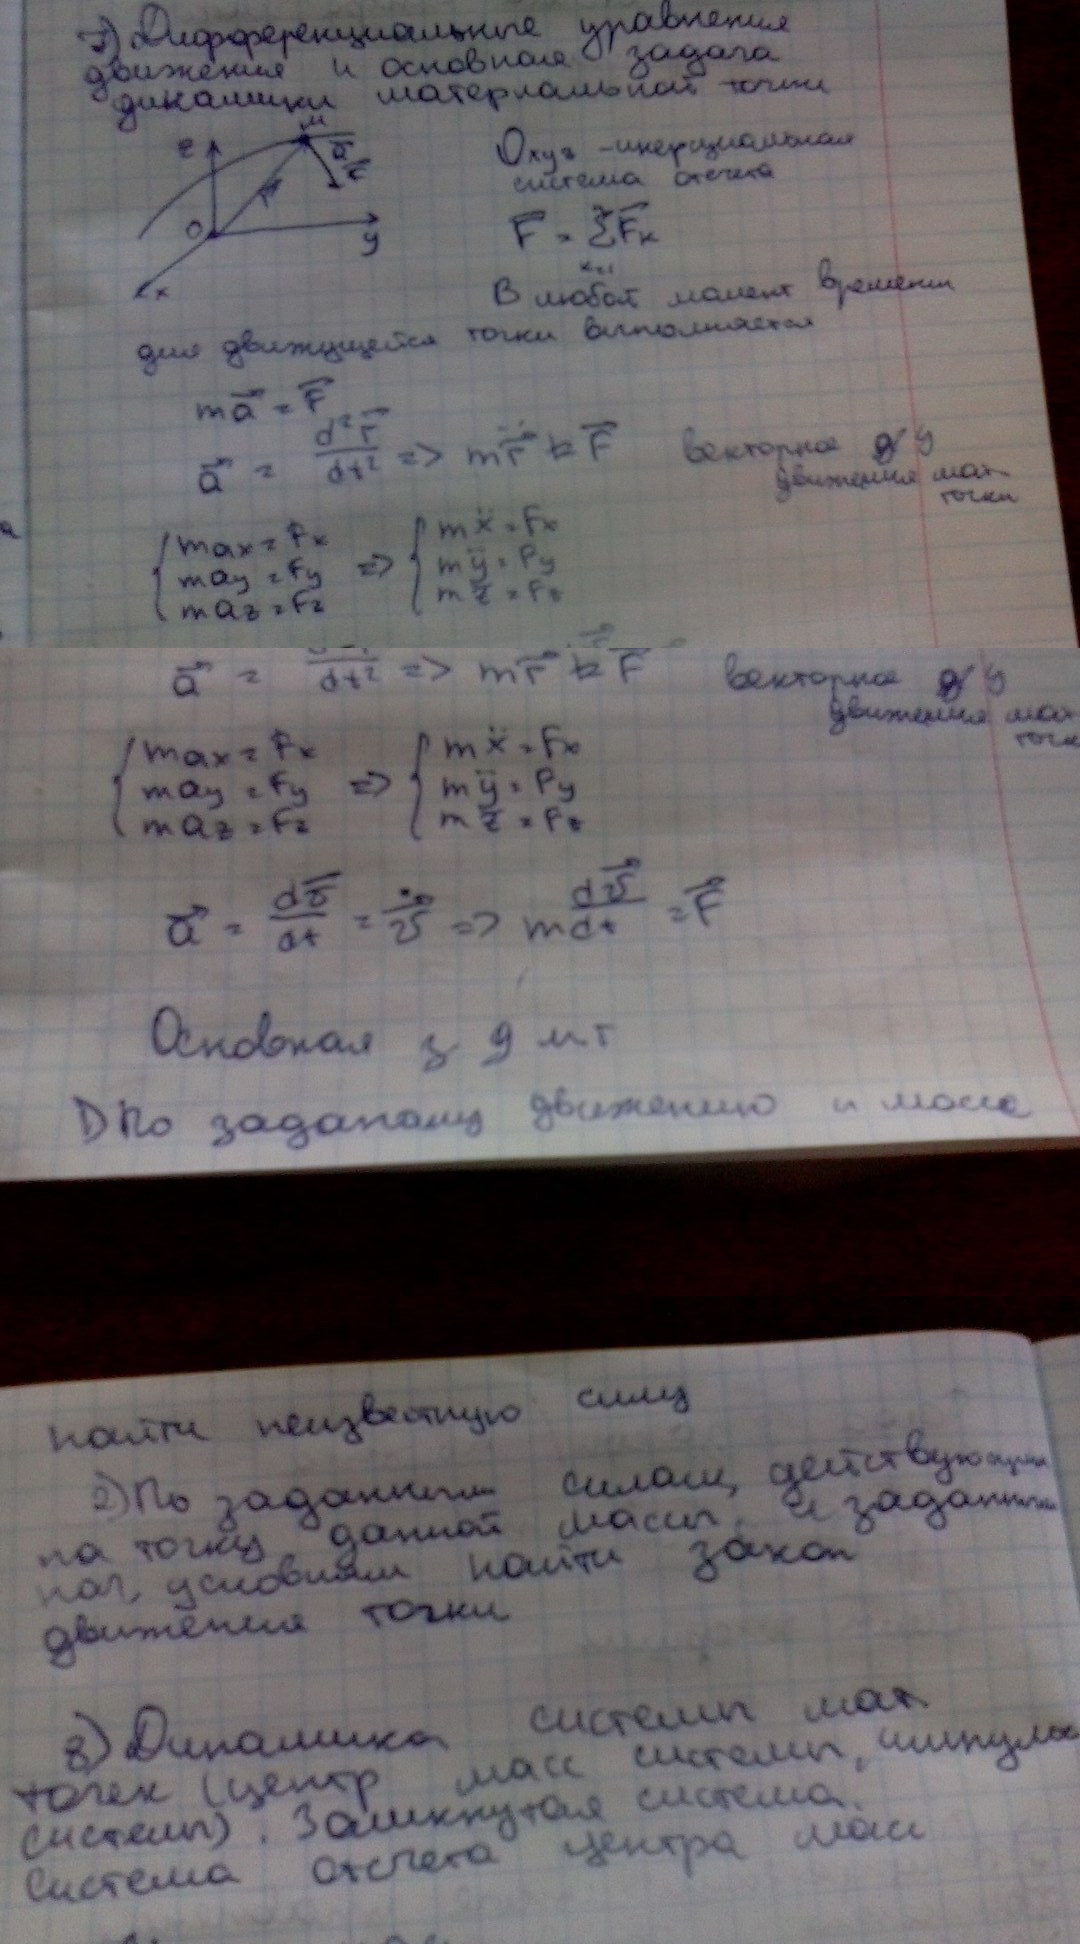 7) Дифференциальные уравнения
движения и основная задача
динамики материальной точки
z M a F r O y x
Oxyz - инерциальная
система отсчета
F = ΣFк
к=1
В любой момент времени
для движущейся точки выполняется
ma = F
a = d²r/dt² => mr̈ = F векторное д у
движения мат.
точки
{ max = Fx => { mẍ = Fx
may = Fy mÿ = Fy
maz = Fz mz̈ = Fz
a = dt² => mr̈ = F векторное д у
движения мат
точк
{ max = Fx => { mẍ = Fx
may = Fy mÿ = Fy
maz = Fz mz̈ = Fz
a = dv/dt = v̇ => m dv/dt = F
Основная з д м т
1) По заданому движению и массе
найти неизвестную силу
2) По заданным силам, действующим
на точку данной массы, и заданным
нач. условиям найти закон
движения точки
8) Динамика системы мат
точек (центр масс системы, импульс
системы). Замкнутая система.
Система отсчета центра масс